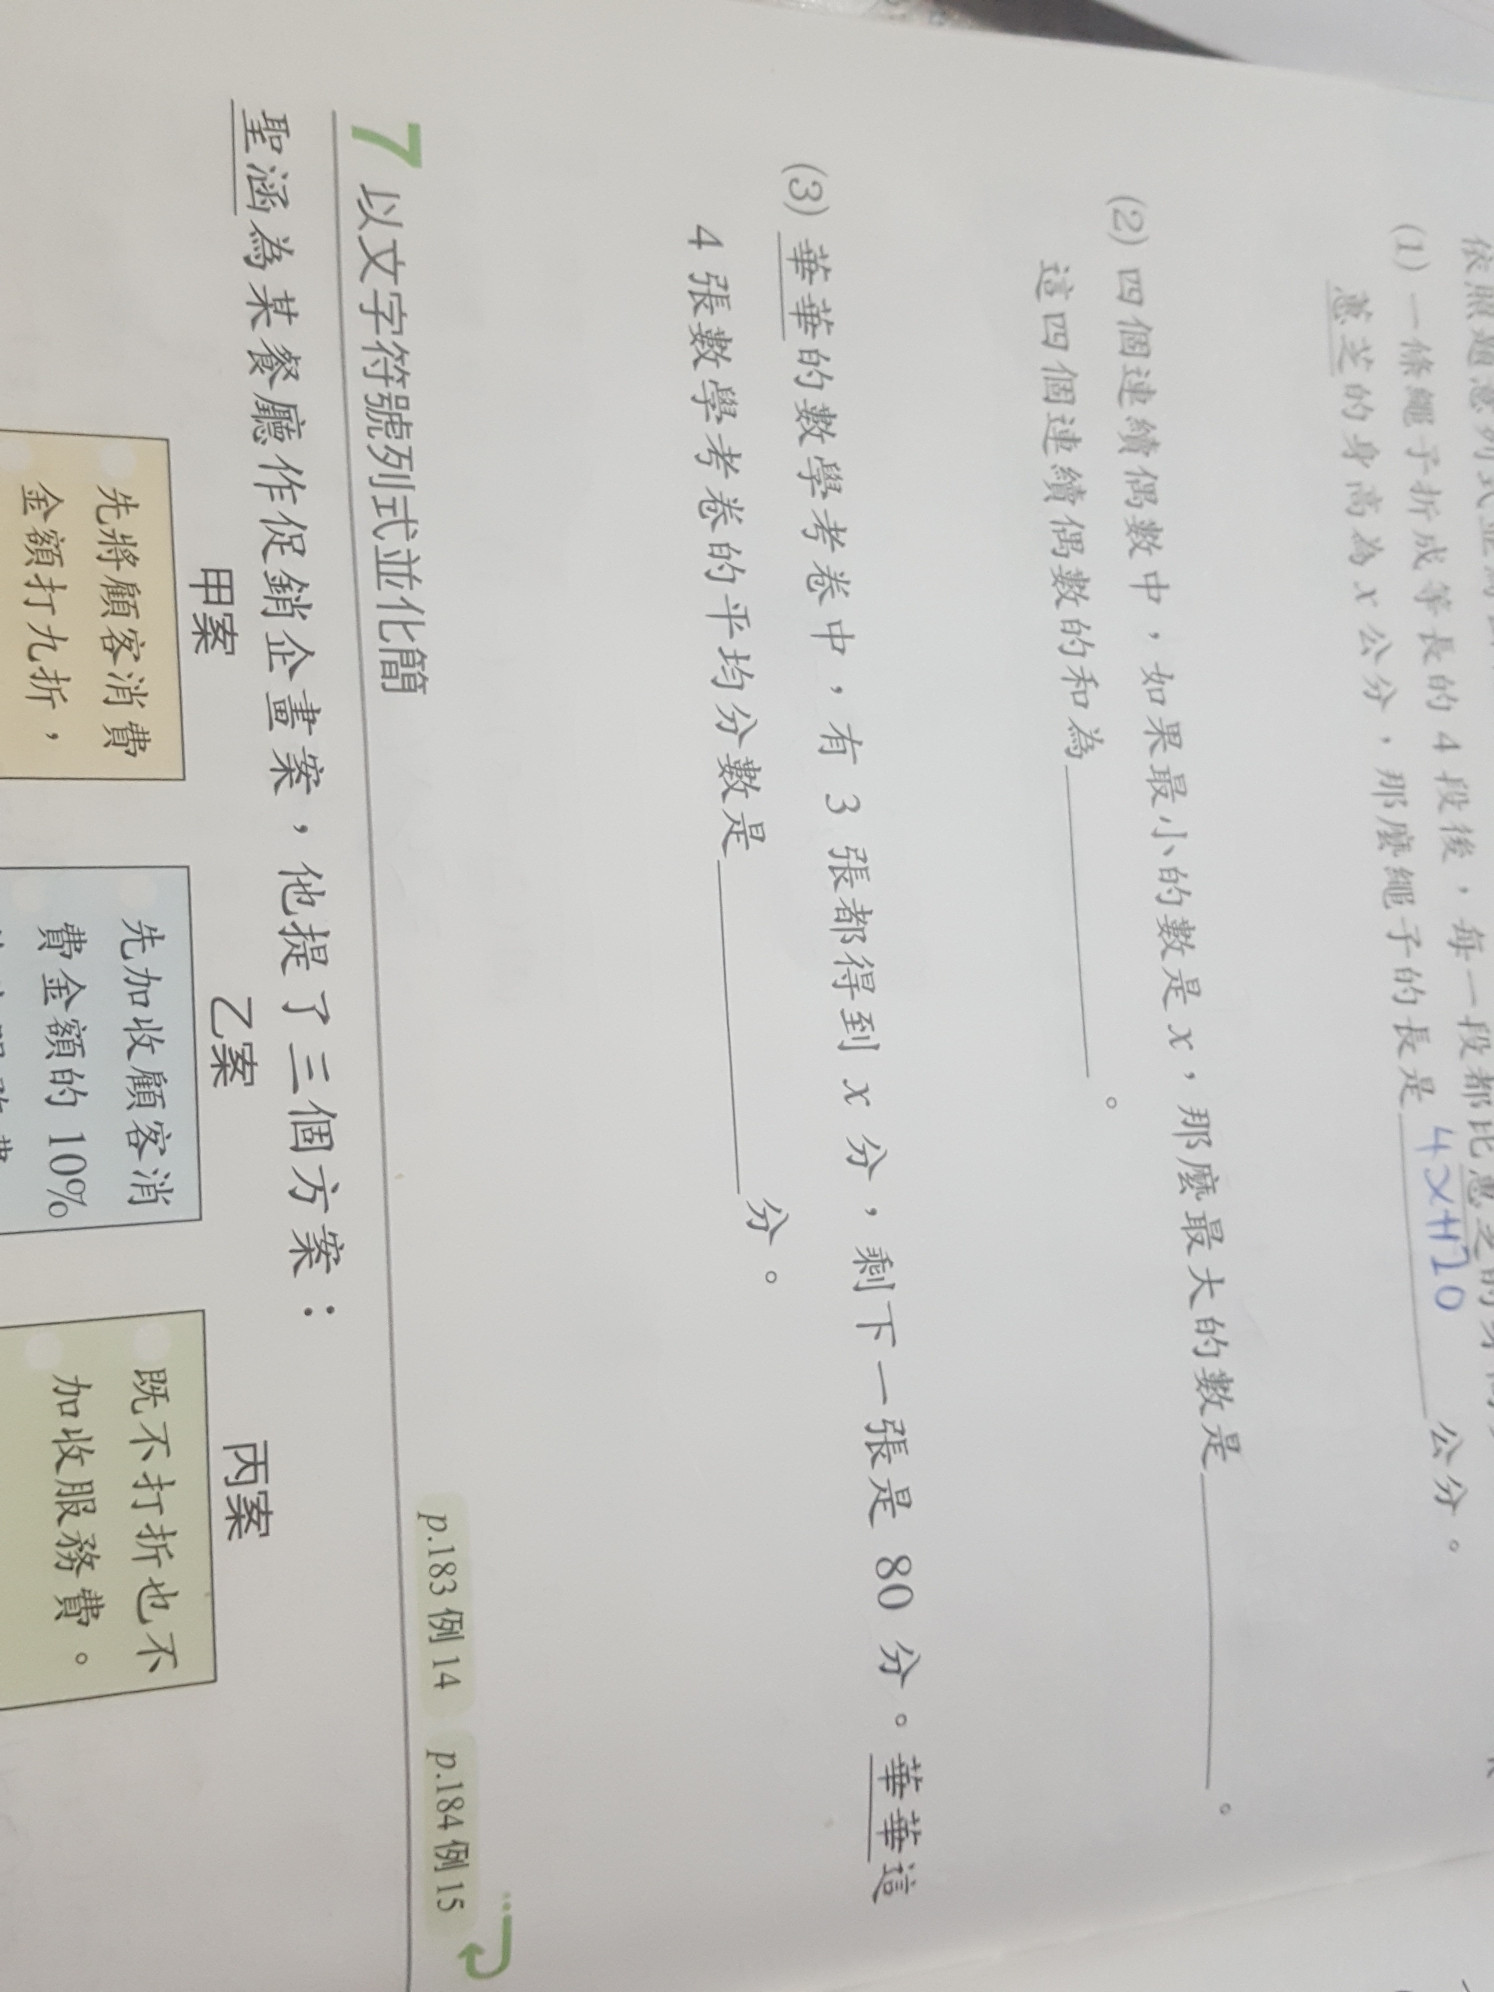 依照題意列式並
(1) 一條繩子折成等長的 4 段後，每一段都比惠芝的身
蕙芝的身高為 x 公分，那麼繩子的長是 4x+120 公分。
(2) 四個連續偶數中，如果最小的數是 x，那麼最大的數是＿＿＿＿。
這四個連續偶數的和為＿＿＿＿。
(3) 華華的數學考卷中，有 3 張都得到 x 分，剩下一張是 80 分。華華這
4 張數學考卷的平均分數是＿＿＿＿分。
7 以文字符號列式並化簡
p.183 例 14 p.184 例 15
聖涵為某餐廳作促銷企畫案，他提了三個方案：
甲案 乙案 丙案
先將顧客消費
金額打九折，
先加收顧客消
費金額的 10%
既不打折也不
加收服務費。